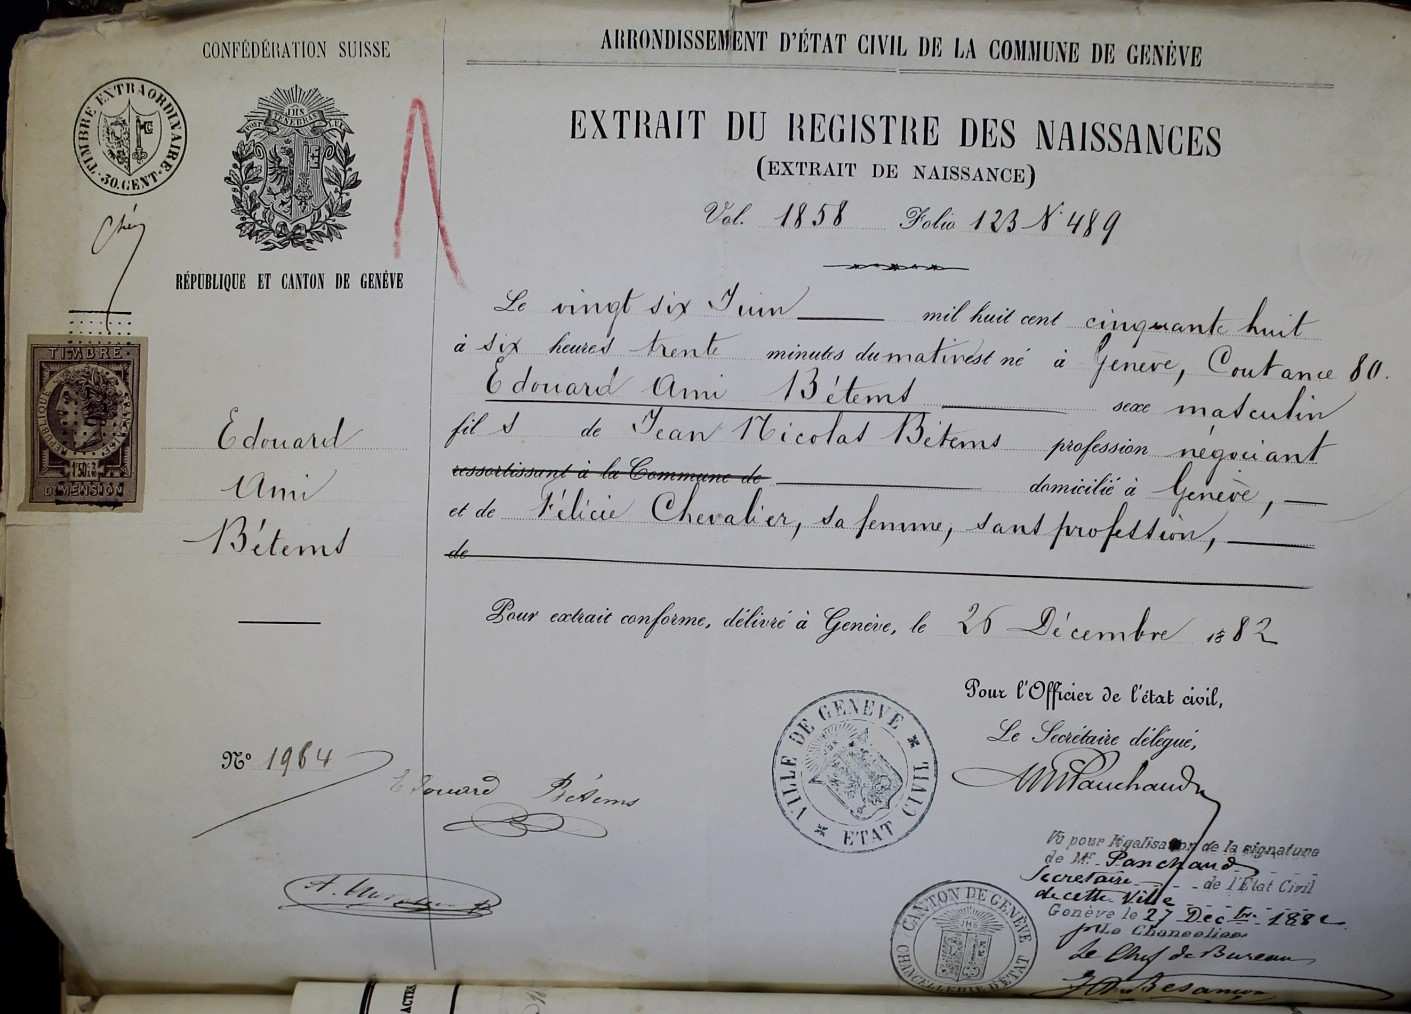 CONFÉDÉRATION SUISSE
TIMBRE EXTRAORDINAIRE
30. CENT.
POST TENEBRAS LUX
JHS
RÉPUBLIQUE ET CANTON DE GENÈVE
TIMBRE
RÉPUBLIQUE FRANÇAISE
DIMENSION
Edouard
Ami
Bétems
Nº 1964
ARRONDISSEMENT D'ÉTAT CIVIL DE LA COMMUNE DE GENÈVE
EXTRAIT DU REGISTRE DES NAISSANCES
(EXTRAIT DE NAISSANCE)
Vol. 1858 Folio 123 Nº 489
Le vingt six Juin mil huit cent cinquante huit
à six heures trente minutes du matin est né à Genève, Coutance 80.
Edouard Ami Bétems sexe masculin
fils de Jean Nicolas Bétems profession négociant
ressortissant à la Commune de domicilié à Genève,
et de Félicie Chevalier, sa femme, sans profession,
de
Pour extrait conforme, délivré à Genève, le 26 Décembre 1882
Pour l'Officier de l'état civil,
Le Secrétaire délégué,
Panchaud
Edouard Bétems
VILLE DE GENÈVE
ETAT CIVIL
Vu pour légalisation de la signature
de Mr. Panchaud
Secrétaire de l'Etat Civil
de cette Ville
Genève le 27 Décbre 1882
pr Le Chancelier
Le Chef de Bureau
Besançon
CANTON DE GENÈVE
CHANCELLERIE D'ÉTAT
JHS
ACTES